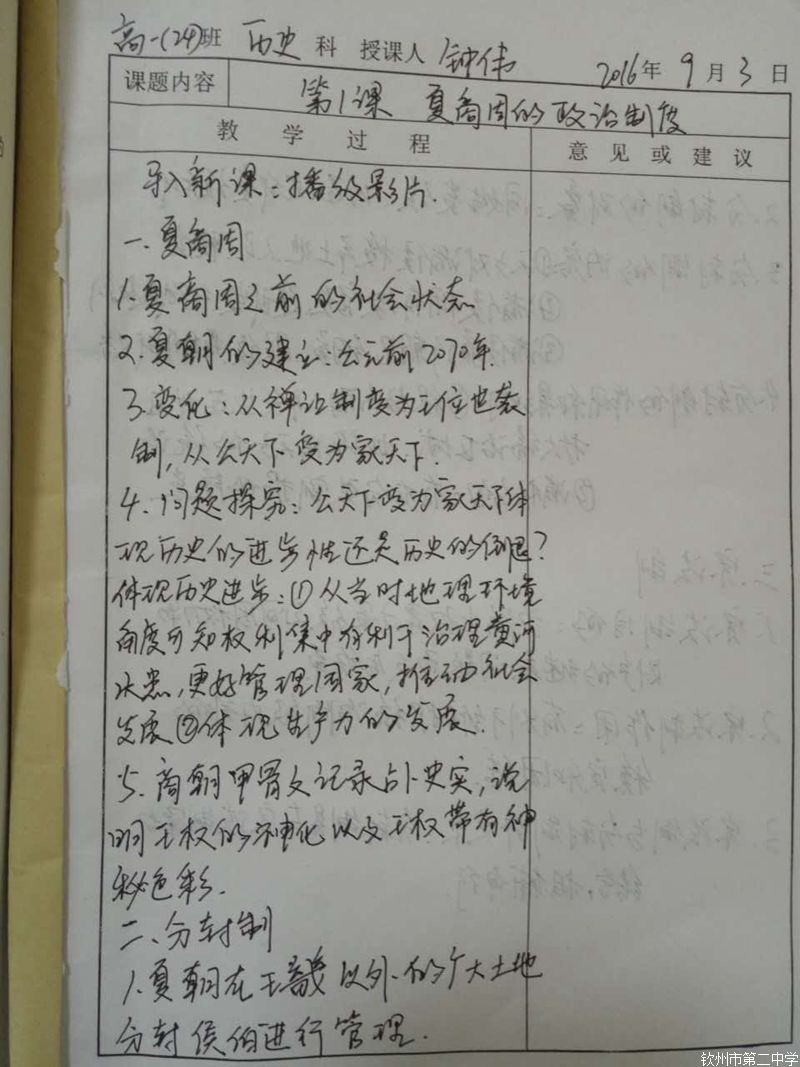 高一(24)班 历史 科 授课人 钟伟 2016年 9月 3日
课题内容 第1课 夏商周的政治制度
教学过程 意见或建议
导入新课：播放影片.
一.夏商周
1.夏商周之前的社会状态
2.夏朝的建立：公元前2070年.
3.变化：从禅让制变为王位世袭
制，从公天下变为家天下.
4.问题探究：公天下变为家天下体
现历史的进步性还是历史的倒退？
体现历史进步：①从当时地理环境
角度可知权利集中有利于治理黄河
水患，更好管理国家，推动社会
发展②体现生产力的发展.
5.商朝甲骨文记录占卜史实，说
明王权的神化以及王权带有神
秘色彩.
二、分封制
1.夏朝在王畿以外的广大土地
分封侯伯进行管理.
钦州市第二中学